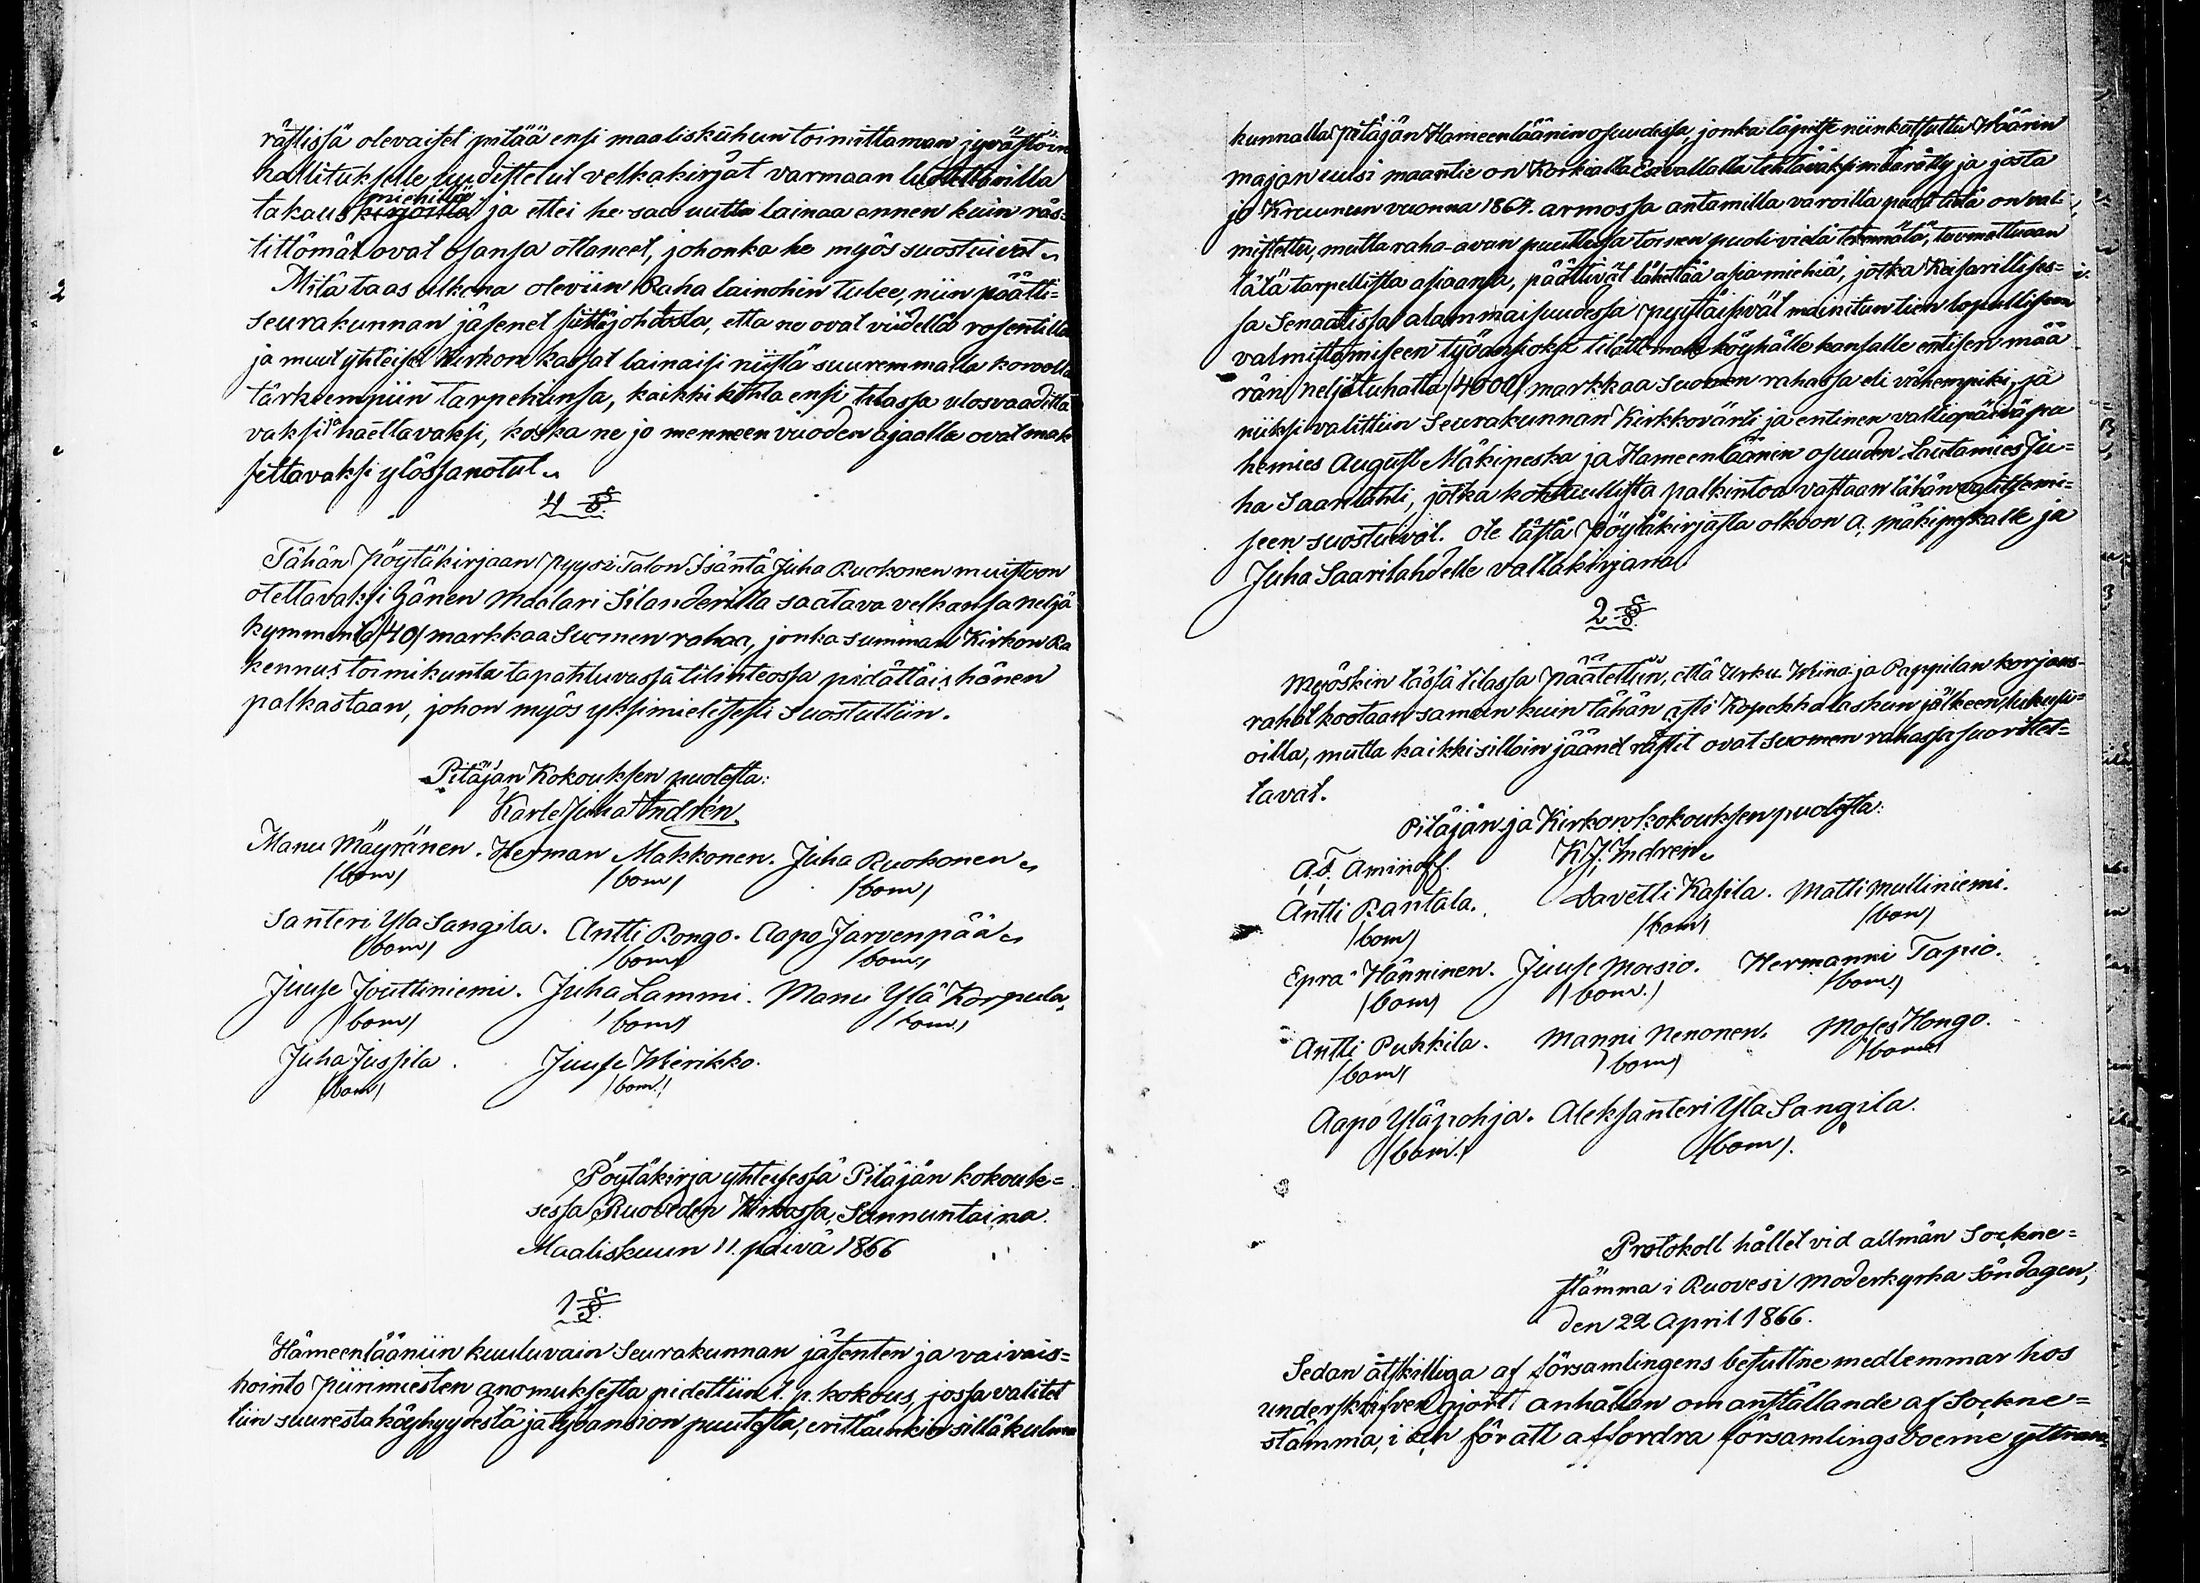 rästissä olevaiset pitää ensi maaliskuhun toimittaman jyvästöin
hallitukselle uudistetut velkakirjat varmaan luotettavilla
takaus miehillä ja ettei he saa uutta lainaa ennen kuin räs-
tittömät ovat osansa ottaneet, johonka he myös suostuivat.
Mitä taas ulkona oleviin Raha lainohin tulee, niin päätti-
seurakunnan jäsenet siitä johdosta, etta ne ovat viidellä rosentilla
ja muut yhteiset Kirkon kassat lainaisi niistä suuremmalla korolla
tärkeempiin tarpehiinsa, kaikki kohta ensi tilassa ulosvaaditta
vaksi ja haettavaksi, koska ne jo menneen vuoden ajaalla ovat mak
settavaksi ylössanotut.
4 §
Tähän Pöytäkirjaan Pyysi Talon Isäntä Juha Ruokonen muistoon
otettavaksi hänen Maalari Silanderilla saatava velkansa neljä
kymmentä /40/ markkaa Suomen rahaa, jonka summan Kirkon Ra
kennus toimikunta tapahtuvassa tilinteossa pidättäis hänen
palkastaan, johon myös yksimielisesti Suostuttiin.
Pitäjän Kokouksen puolesta:
Karle Juha Andrén.
Manu Mäyränen. Herman Makkonen. Juha Ruokonen
/bom/ /bom/ /bom/
Santeri Yla Sangila. Antti Rongo. Aapo Jarvenpää
/bom/ /bom/ /bom/
Juuse Jouttiniemi. Juha Lammi. Manu Ylä Karpula
/bom/ /bom/ /bom/
Juha Jussila. Juuse Wirikko.
/bom/ /bom/
Pöytäkirja yhteisessä Pitäjän kokouk=
sessa Ruoveden Kirkossa, Sunnuntaina
Maaliskuun 11. päivä 1866
1 §
Hämeenlääniin kuuluvain Seurakunnan jäsenten ja vaivais=
hointo Piirimiesten anomuksesta pidettiin t. p. kokous, jossa valitet
tiin suuresta köyhyydestä ja työansion puutesta, erittäinkin sillä kulma
kunnalla Pitäjän Hameenläänin osuudessa, jonka läpitse niinkattuttu Wäärin
majan uusi maantie on Korkialla Esivallalta tehtäväksi määrätty ja josta
jo Kruunun vuonna 1864. armossa antamilla varoilla puoli tietä on val-
mistettu, mutta raha-avun puutteessa toinen puoli vielä tekemätä, tuomattuaan
tätä tarpellista asiaansa, päättivät lähettää asiamiehiä, jotka Keisarillises-
sa Senaatissa alammaisuudessa pyytäisivät mainitun tien lopullisen
valmistamiseen työansioksi tilattomalle köyhälle kansalle entisen mää
rän neljätuhatta /4000/ markkaa Suomen rahassa eli vähempiki, ja
niiksi valittiin Seurakunnan Kirkkovärti ja entinen valtiopäiväpa
hemies August Mäkipeska ja Hameenläänin osuuden Lautamies Ju=
ha Saarilahti, jotka kohtuullista palkintoa vastaan tähän valitsemi=
seen suostuivat. Ote tästä Pöytäkirjasta olkoon A. Mäkipeskalle ja
Juha Saarilahdelle valtakirjana
2 §
Myöskin tässä tilassa päätettiin, että Urku Wiina ja Pappilan korjaus-
rahat kootaan samoin kuin tähän asti Kopekka laskun jälkeen
oilla, mutta kaikki silloin jäänet rästit ovat Suomen rahassa suoritet=
tavat.
Pitäjän ja Kirkon kokouksen puolesta:
A. F. Aminoff. K. J. Andren
Antti Rantala. Davetti Kasila. Matti Mulliniemi.
/bom/ /bom/ /bom/
Epra Hänninen. Juuse Moisio. Hermanni Tapio.
/bom/ /bom./ /bom/
Antti Pukkila. Manni Nenonen. Moses Hongo.
/bom/ /bom/ /bom/
Aapo Yläpohja. Aleksanteri Yla Sangila.
/bom./ /bom/.
Protokoll hållet vid allmän Sockne=
stämma i Ruovesi moderkyrka Söndagen,
den 22 April 1866.
Sedan åtskilliga af församlingens besuttne medlemmar hos
underskrifven gjort anhållan om anställande af Sockne=
stämma, i och för att affordra församlingsboerne yttran